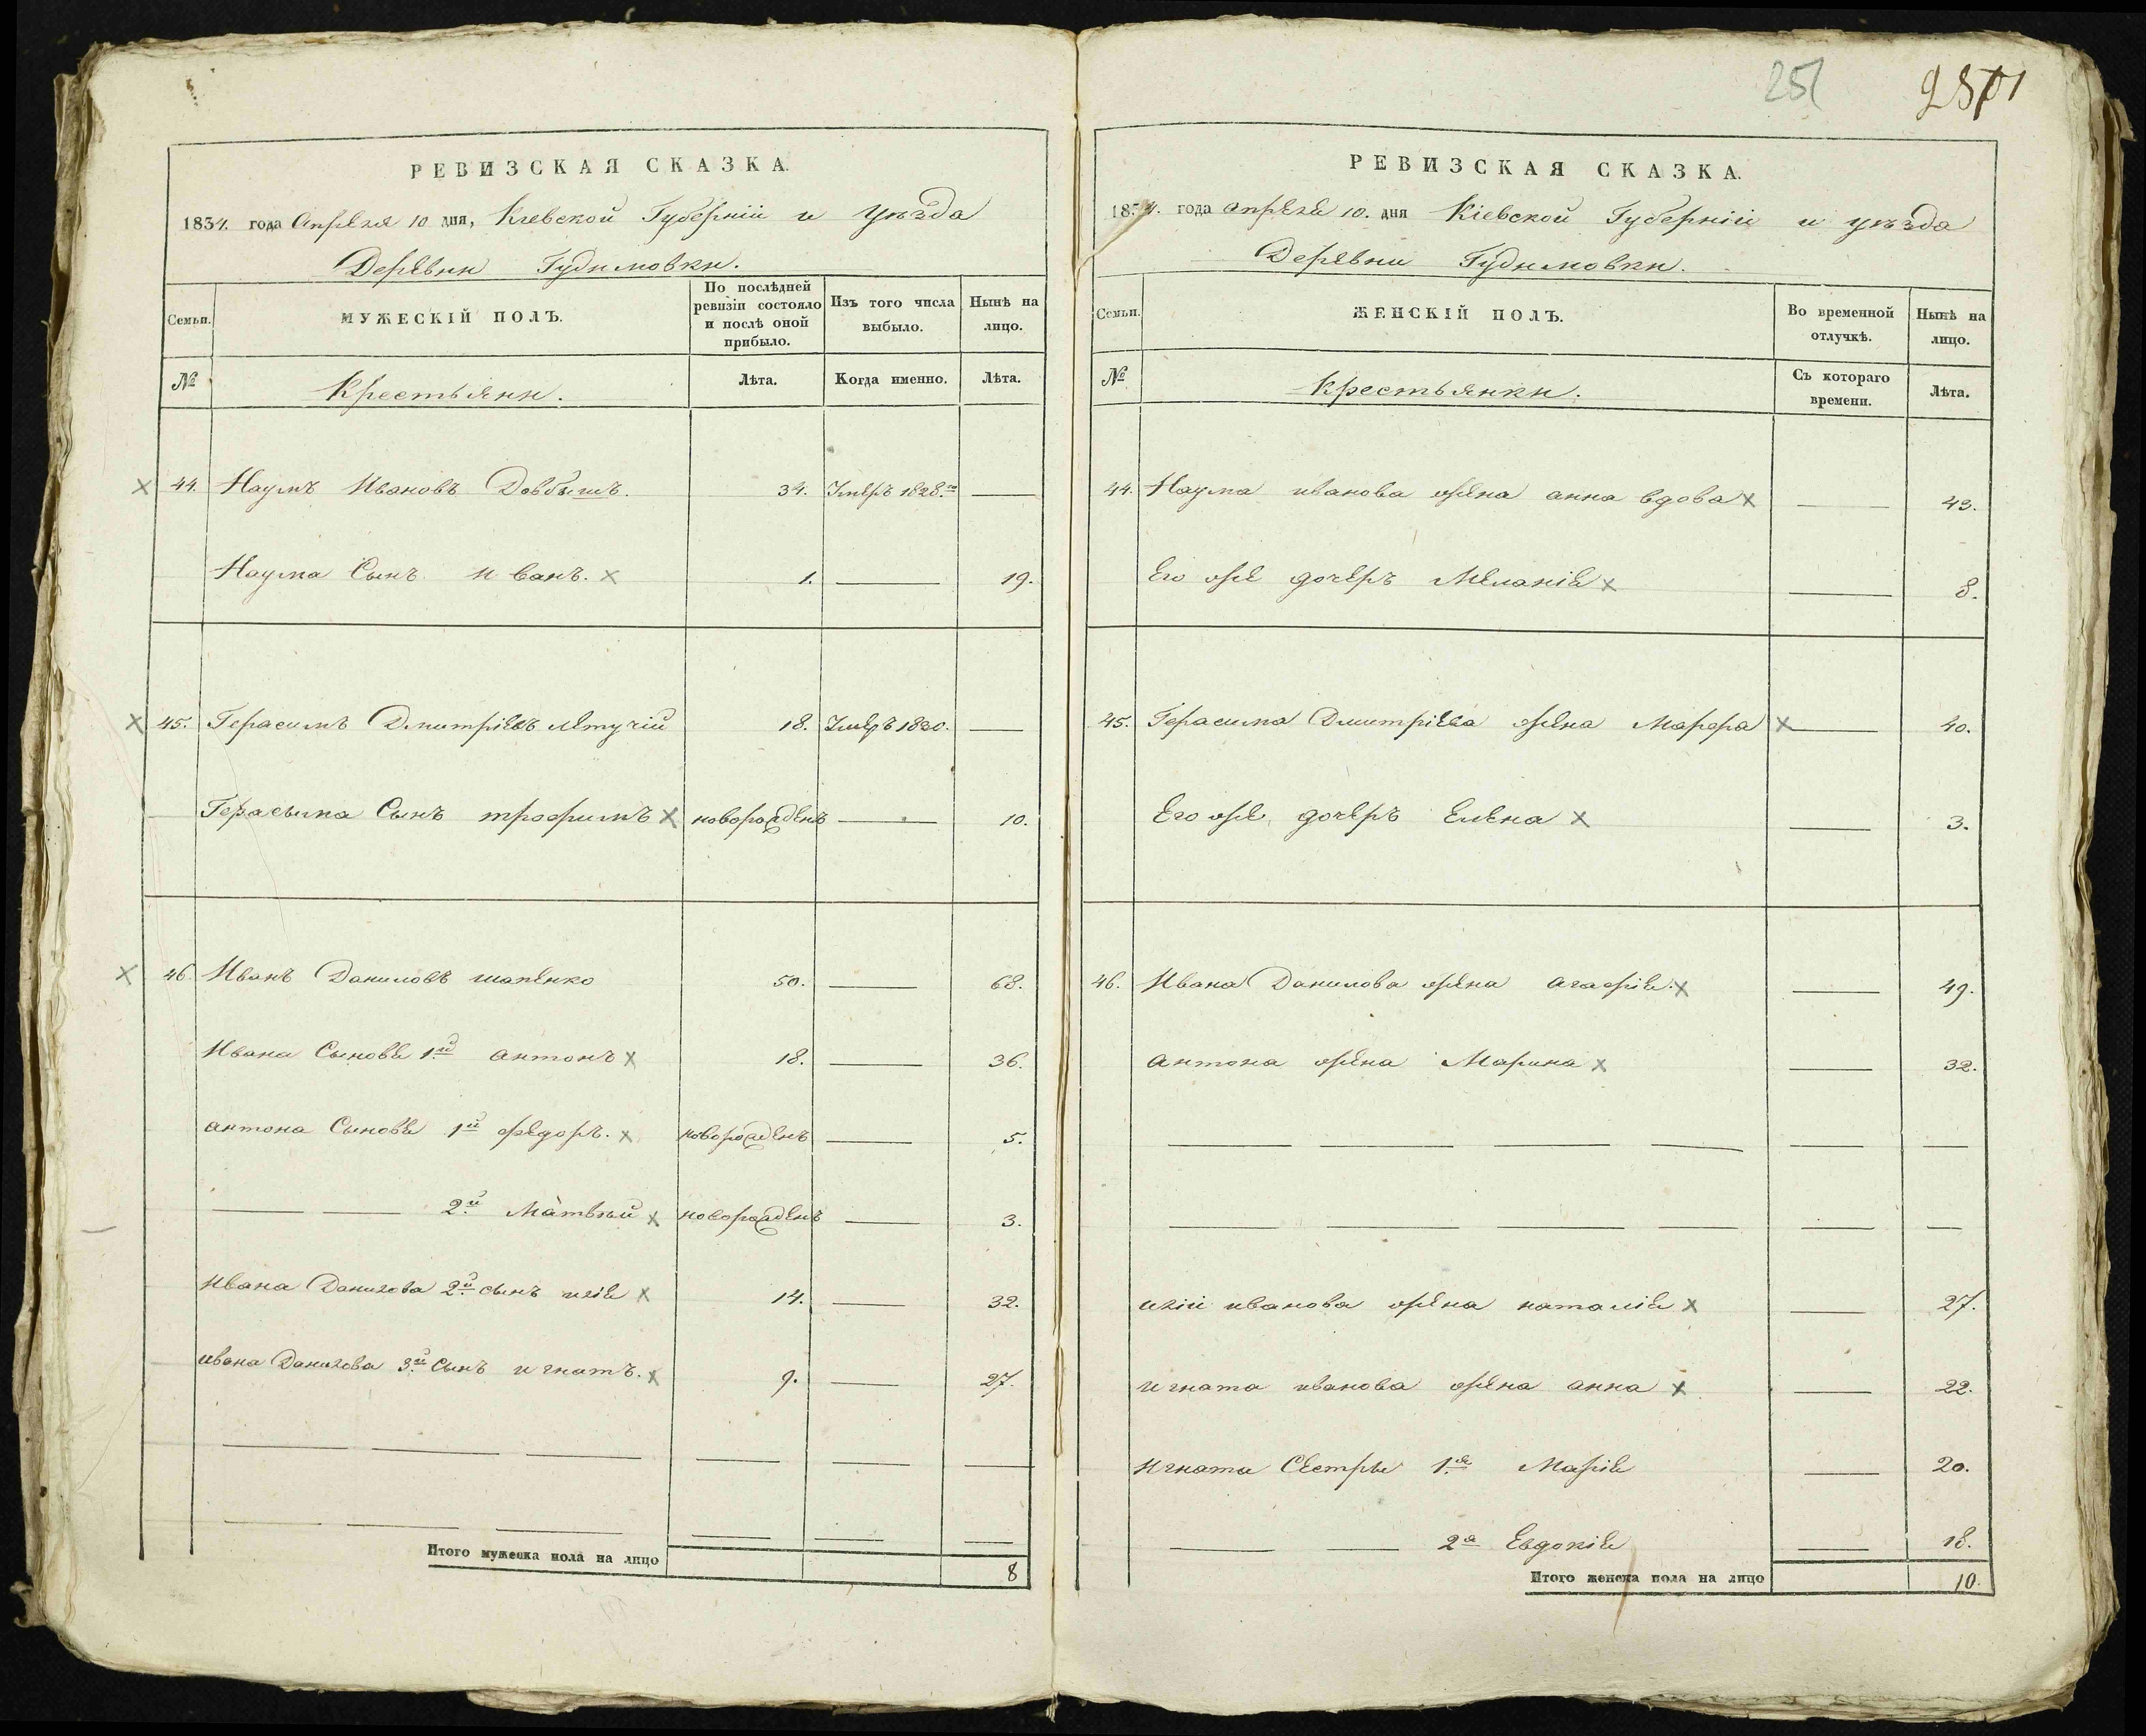 251
РЕВИЗСКАЯ СКАЗКА.
1834. года Апреля 10 дня, Киевской Губерніи и Уѣзда
Деревни Гудимовки.
Семьи.
МУЖЕСКІЙ ПОЛЪ.
По послѣдней ревизіи состояло и послѣ оной прибыло.
Изъ того числа выбыло.
Нынѣ на лицо.
№
Крестьяни.
Лѣта.
Когда именно.
Лѣта.
44. Наумъ Ивановъ Довбышъ. 34. Умеръ 1828.го —
Наума Сынъ Иванъ. 1. — 19.
45. Герасимъ Дмитріевъ летучій 18. Умеръ 1830. —
Герасыма Сынъ трофимъ новорожденъ — 10.
46. Иванъ Даниловъ шапенко 50. — 68.
Ивана Сыновѣ 1й антонъ 18. — 36.
антона Сыновѣ 1й федоръ. новорожденъ — 5.
— — 2й Матвѣй новорожденъ — 3.
Ивана Данилова 2й сынъ иліе 14. — 32.
ивана Данилова 3й Сынъ игнатъ. 9. — 27.
Итого мужеска пола на лицо 8
РЕВИЗСКАЯ СКАЗКА.
1834. года апреле 10. дня Кіевской Губерніи и уѣзда
Деревни Гудимовки.
Семьи.
ЖЕНСКІЙ ПОЛЪ.
Во временной отлучкѣ.
Нынѣ на лицо.
№
Крестьянки.
Съ котораго времени.
Лѣта.
44. Наума иванова жена анна вдова — 43.
Его же дочеръ Меланіе — 8.
45. Герасима Дмитріева жена Марфа — 40.
Его же дочеръ Елена — 3.
46. Ивана Данилова жена агафіе. — 49.
антона жена Марина — 32.
иліи иванова жена наталіе — 27.
игната иванова жена анна — 22.
Игната Сестры 1я Маріе — 20.
— — 2я Евдокіе — 18.
Итого женска пола на лицо 10.